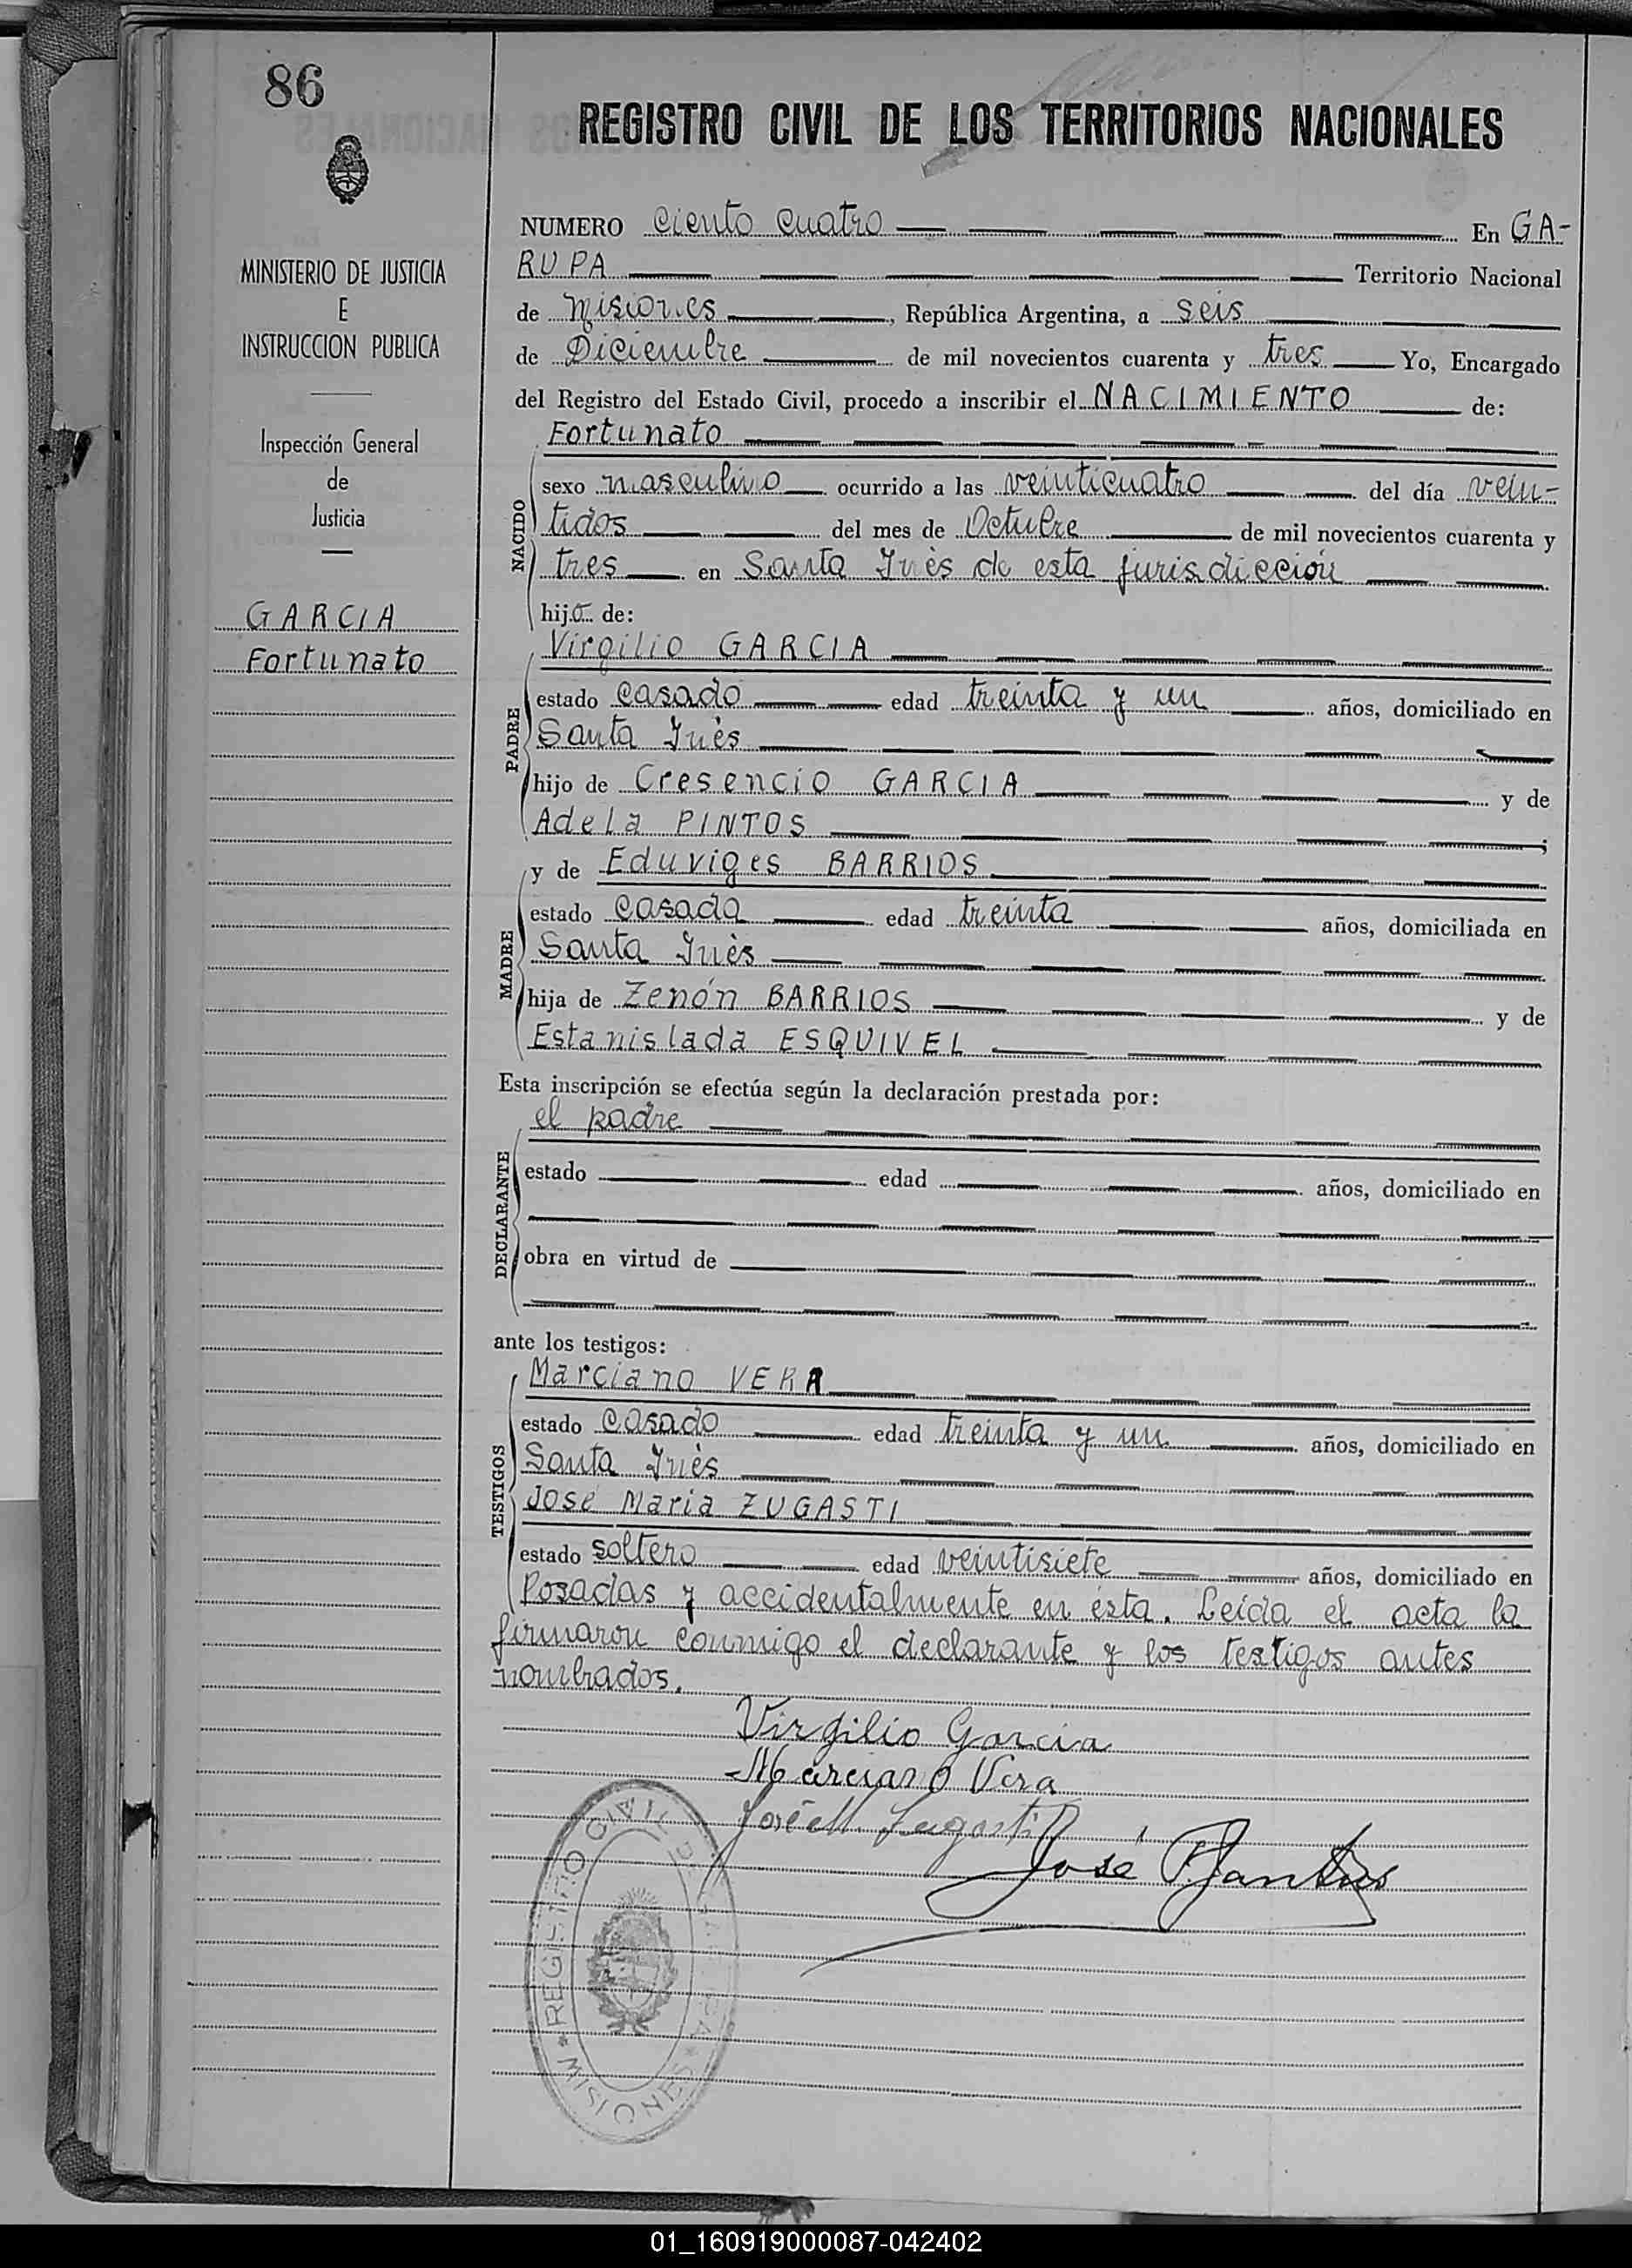 86
REGISTRO CIVIL DE LOS TERRITORIOS NACIONALES
MINISTERIO DE JUSTICIA
E
INSTRUCCION PUBLICA
Inspección General
de
Justicia
GARCIA
Fortunato
NUMERO ciento cuatro En GA-
RUPA Territorio Nacional
de Misiones, República Argentina, a seis
de Diciembre de mil novecientos cuarenta y tres Yo, Encargado
del Registro del Estado Civil, procedo a inscribir el NACIMIENTO de:
Fortunato
NACIDO
sexo masculino ocurrido a las veinticuatro del día vein-
tidos del mes de Octubre de mil novecientos cuarenta y
tres en Santa Inès de esta jurisdicción
hijo de:
Virgilio GARCIA
PADRE
estado casado edad treinta y un años, domiciliado en
Santa Inès
hijo de Cresencio GARCIA y de
Adela PINTOS ;
y de Eduviges BARRIOS
MADRE
estado casada edad treinta años, domiciliada en
Santa Inès
hija de Zenón BARRIOS y de
Estanislada ESQUIVEL
Esta inscripción se efectúa según la declaración prestada por:
el padre
DECLARANTE
estado edad años, domiciliado en
obra en virtud de
ante los testigos:
Marciano VERA
TESTIGOS
estado casado edad treinta y un años, domiciliado en
Santa Inès
José Maria ZUGASTI
estado soltero edad veintisiete años, domiciliado en
Posadas y accidentalmente en èsta. Leída el acta la
firmaron conmigo el declarante y los testigos antes
nombrados.
Virgilio Garcia
Marciano Vera
José M. Zugasti
José
REGISTRO CIVIL
MISIONES
01_160919000087-042402